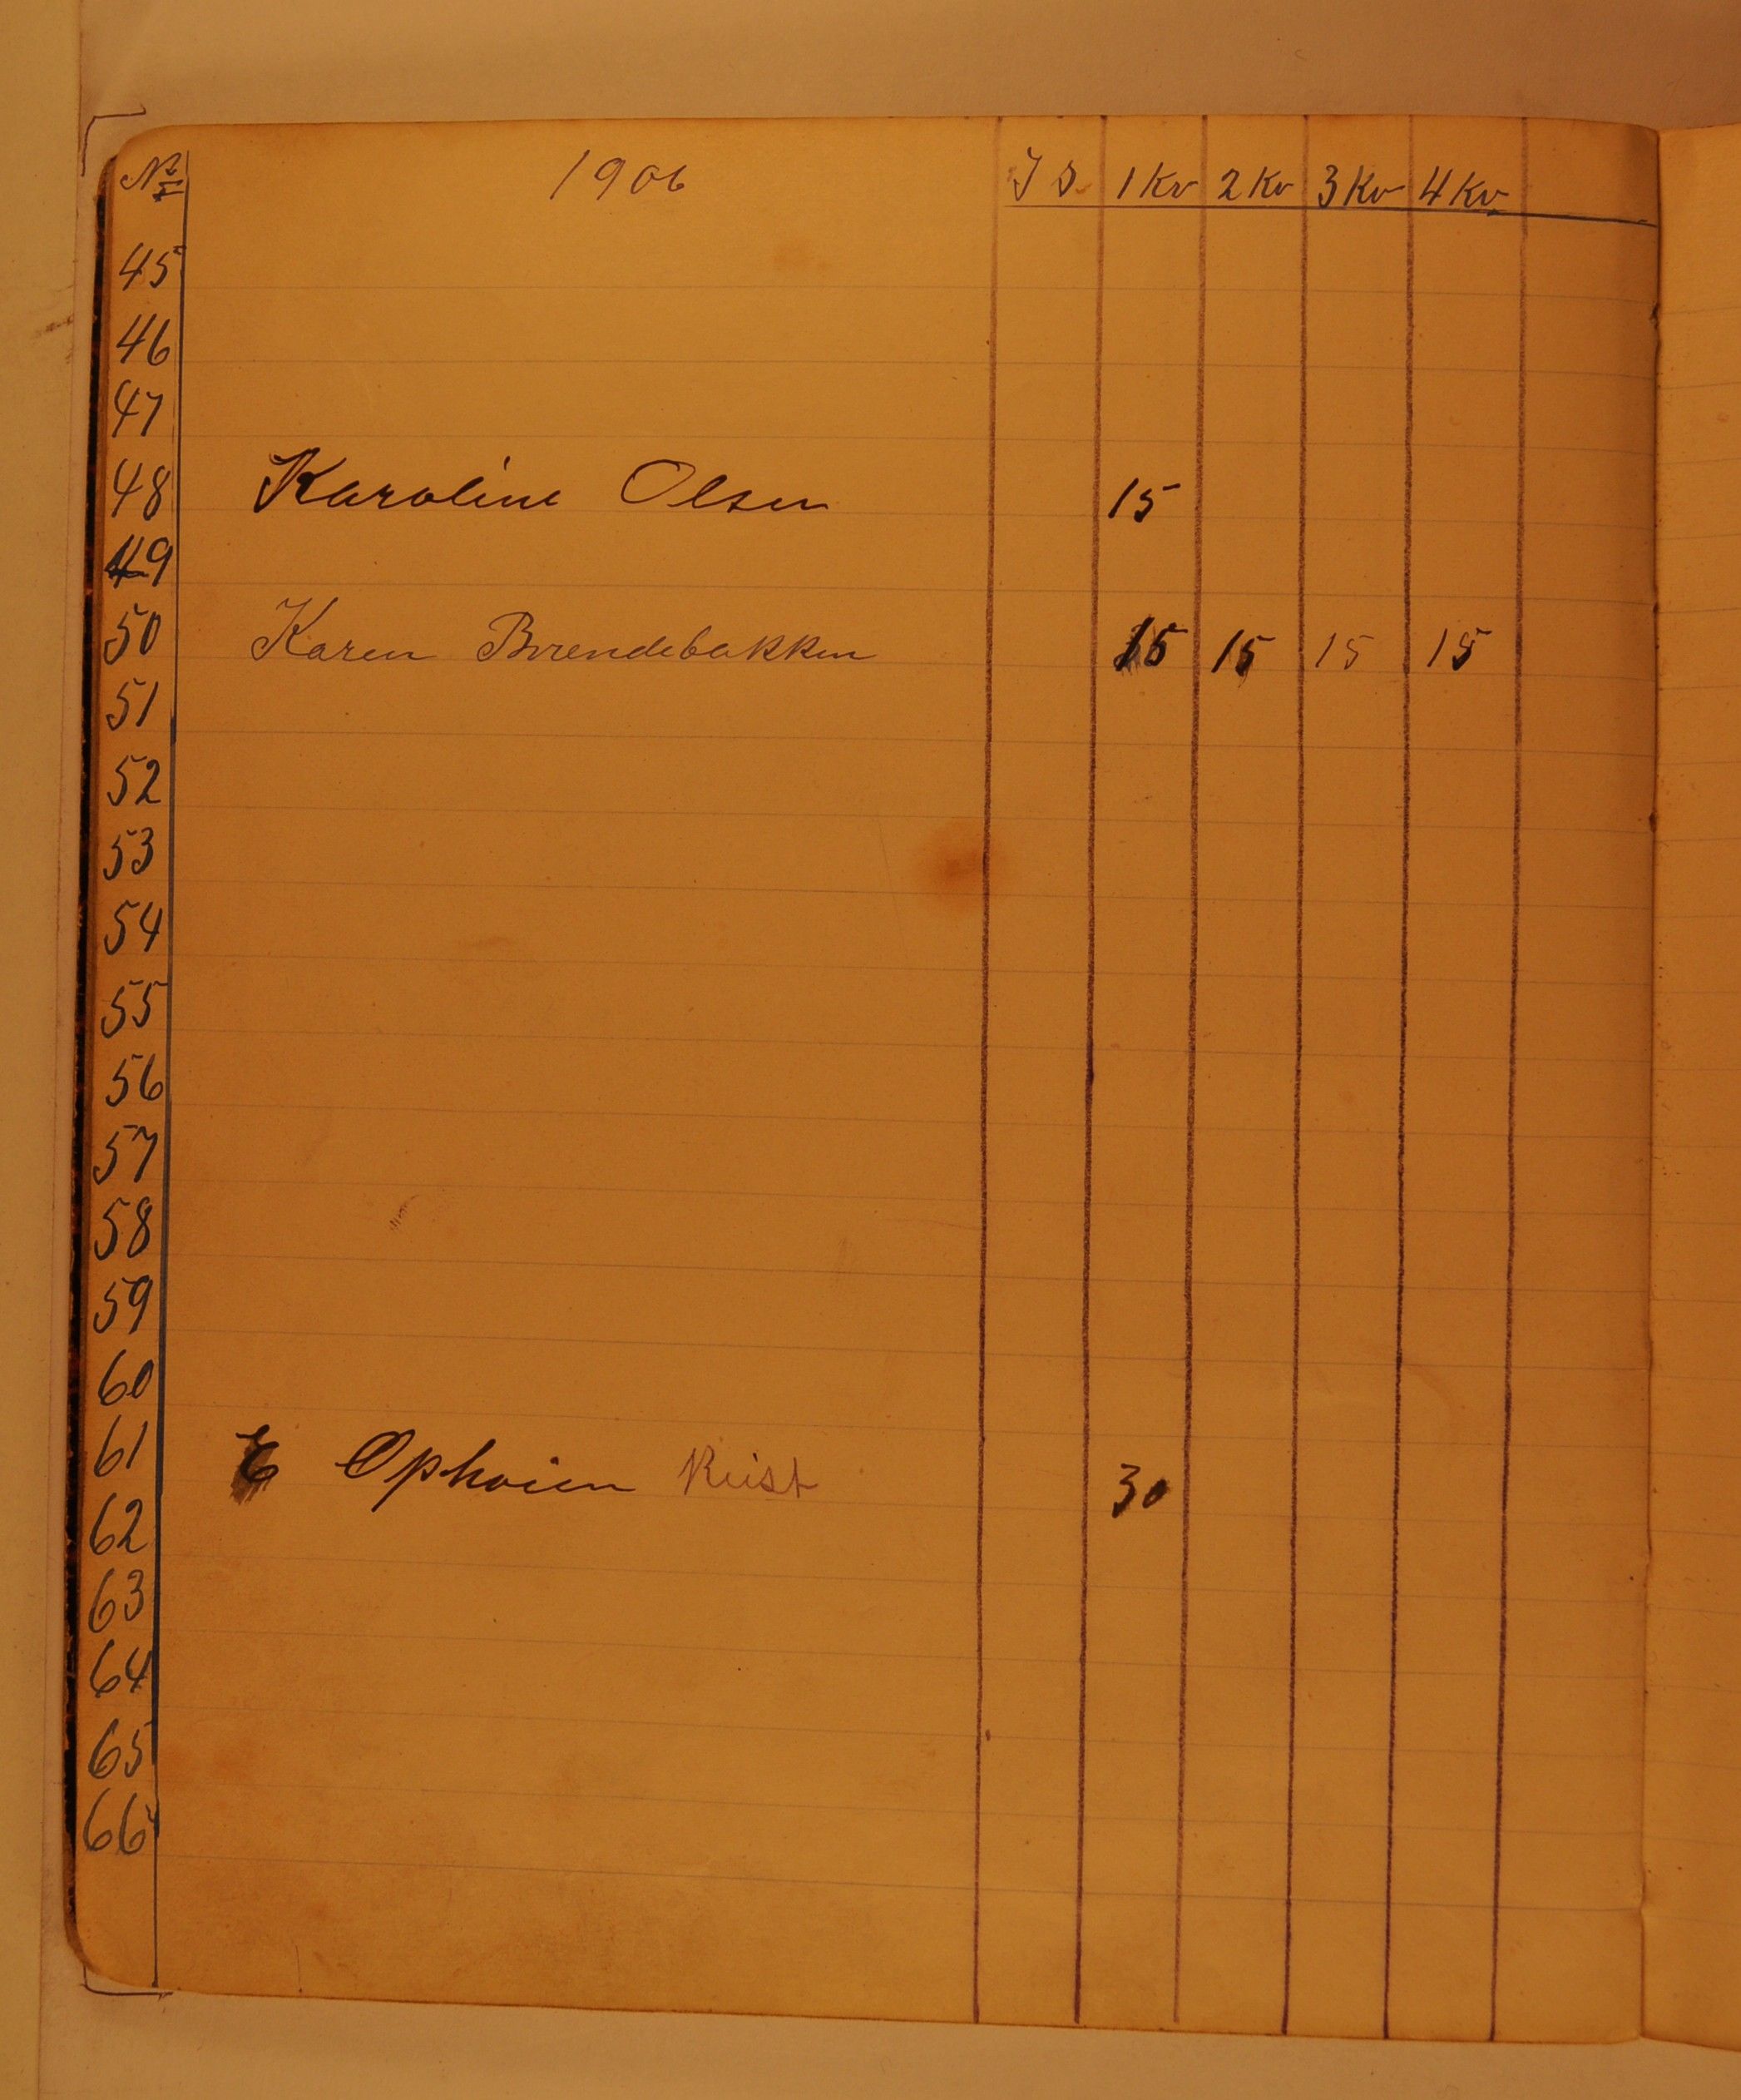 № 1906 I S. 1 Kv 2 Kv 3 Kv 4 Kv
45
46
47
48 Karoline Olsen 15
49
50 Karen Brændebakken 15 15 15 15
51
52
53
54
55
56
57
58
59
60
61 E Ophoien Reist 30
62
63
64
65
66